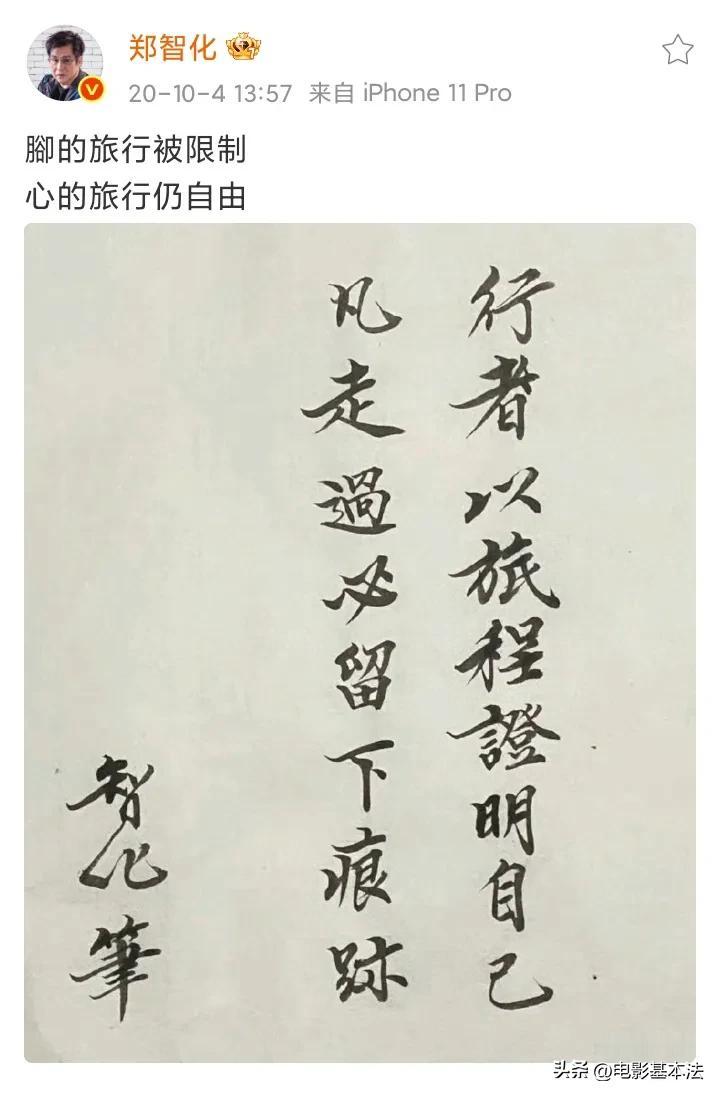 郑智化
20-10-4 13:57 来自 iPhone 11 Pro
腳的旅行被限制
心的旅行仍自由
行者以旅程證明自己
凡走過必留下痕跡
智化筆
头条 @电影基本法